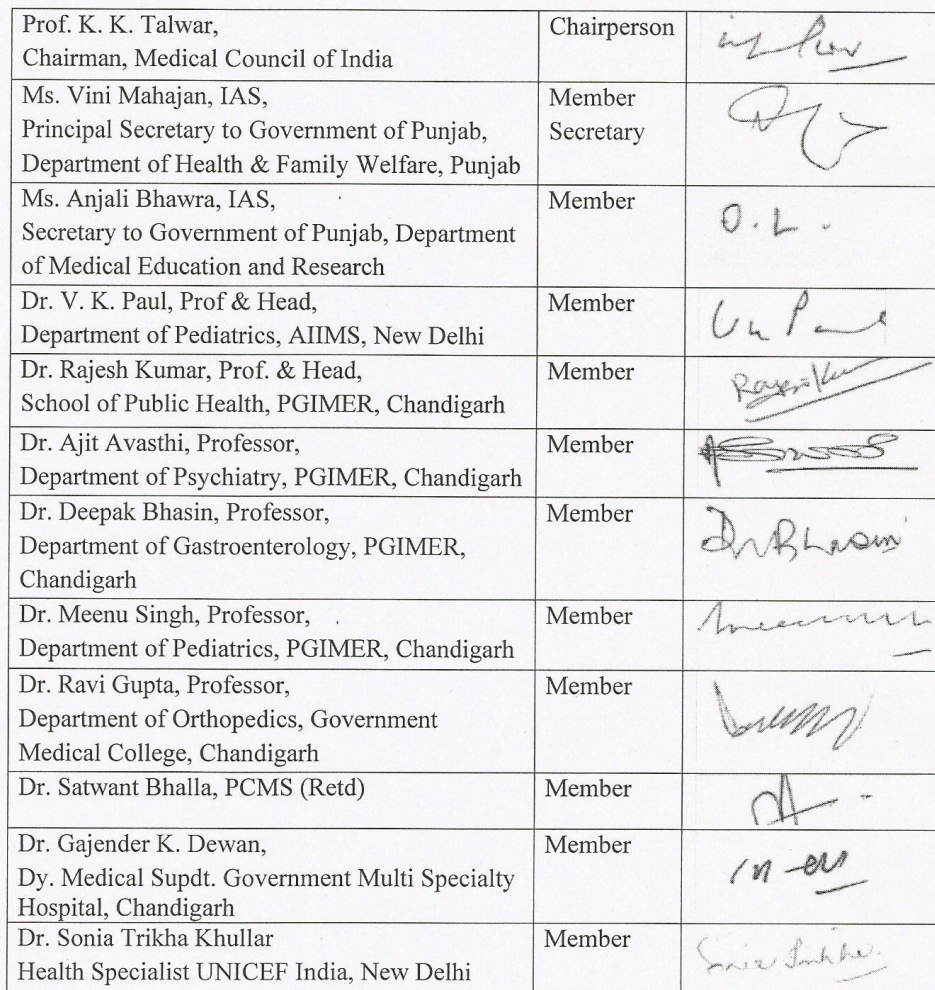 Prof. K. K. Talwar,
Chairman, Medical Council of India
Chairperson
Ms. Vini Mahajan, IAS,
Principal Secretary to Government of Punjab,
Department of Health & Family Welfare, Punjab
Member
Secretary
Ms. Anjali Bhawra, IAS,
Secretary to Government of Punjab, Department
of Medical Education and Research
Member
O. L.
Dr. V. K. Paul, Prof & Head,
Department of Pediatrics, AIIMS, New Delhi
Member
Dr. Rajesh Kumar, Prof. & Head,
School of Public Health, PGIMER, Chandigarh
Member
Dr. Ajit Avasthi, Professor,
Department of Psychiatry, PGIMER, Chandigarh
Member
Dr. Deepak Bhasin, Professor,
Department of Gastroenterology, PGIMER,
Chandigarh
Member
Dr. Meenu Singh, Professor,
Department of Pediatrics, PGIMER, Chandigarh
Member
Dr. Ravi Gupta, Professor,
Department of Orthopedics, Government
Medical College, Chandigarh
Member
Dr. Satwant Bhalla, PCMS (Retd)
Member
Dr. Gajender K. Dewan,
Dy. Medical Supdt. Government Multi Specialty
Hospital, Chandigarh
Member
Dr. Sonia Trikha Khullar
Health Specialist UNICEF India, New Delhi
Member